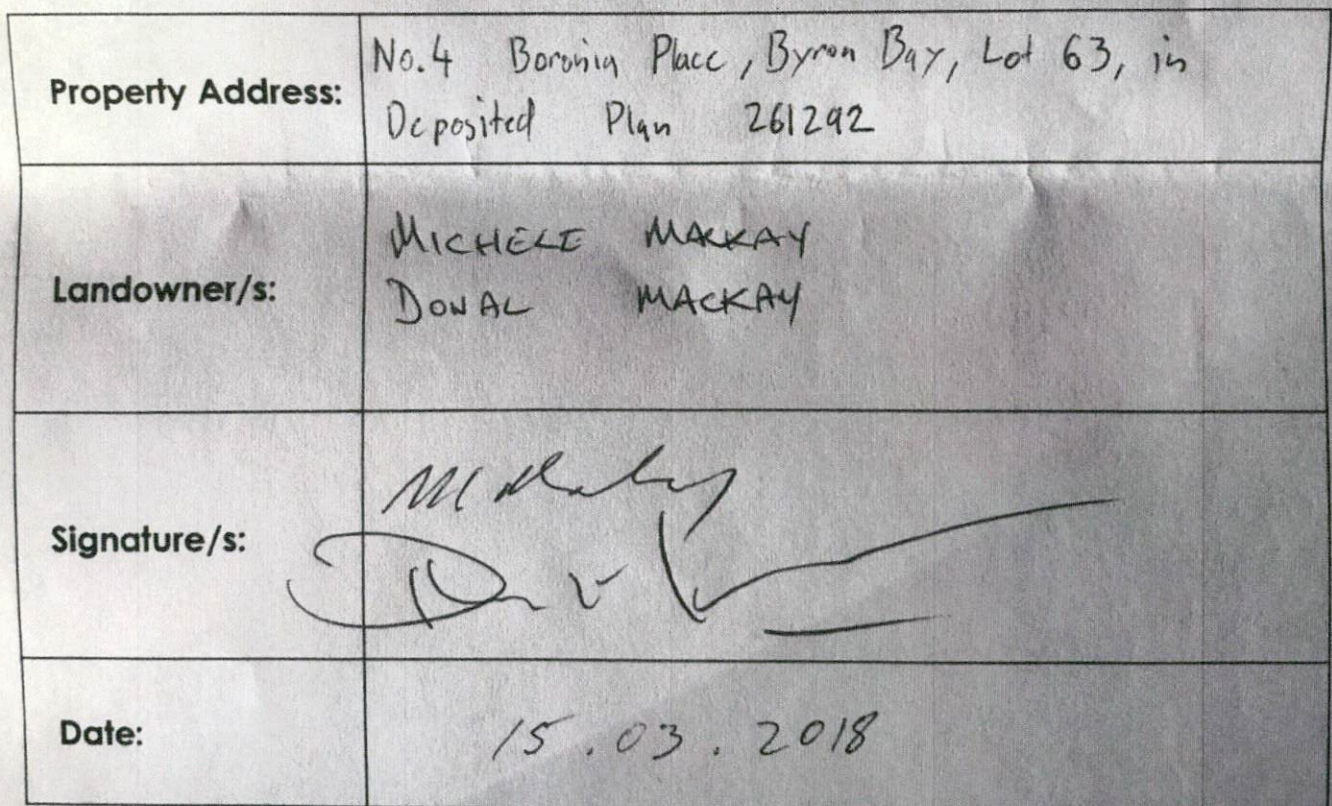 Property Address:
No.4 Boronia Place, Byron Bay, Lot 63, in
Deposited Plan 261292
Landowner/s:
MICHELE MACKAY
DONAL MACKAY
Signature/s:
Date:
15.03.2018